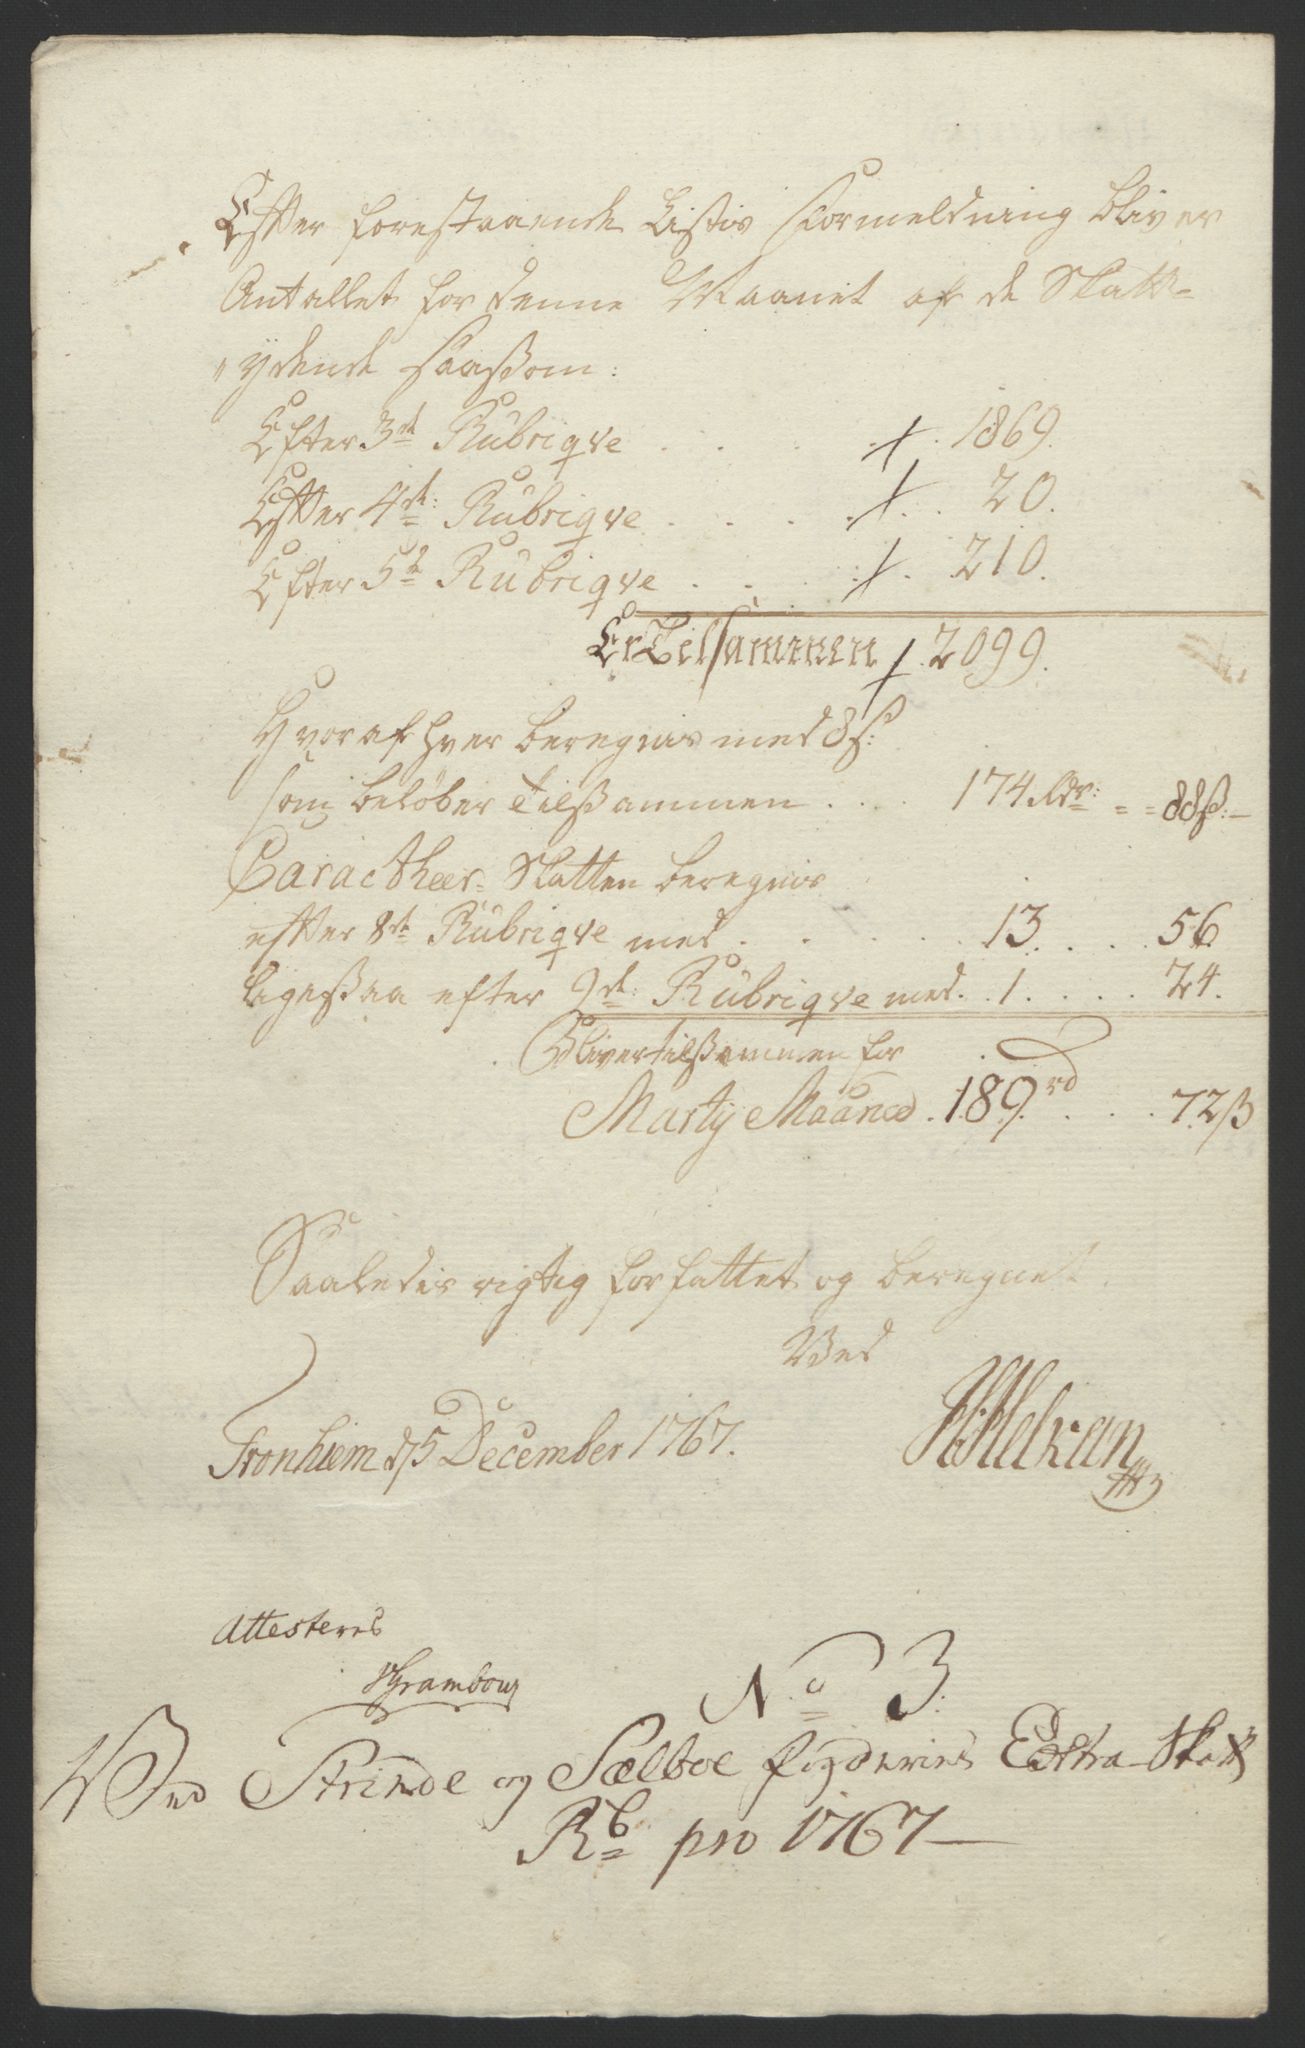 Efter forestaaende Listis Formeldning bliver
Antallet for denne Maanet af de Skatt-
ydende saassom:
Efter 3de Rubriqve . . . 1869.
Efter 4de: Rubriqve . . . 20.
Efter 5te Rubriqve . . . 210.
Er Tilsammen 2099.
Hvoraf hver beregnis med 8s:
som beløber Tilssammen . . . 174 Rdr: 88s:
Caractheer-Skatten beregnis
efter 8de Rubriqve med . . . 13. . . . 56.
ligessaa efter 9de: Rubriqve med . . 1 . . . . 24.
Bliver tilssammen for
Martij Maaned . 189 rd . . . 72 s
Saaledis rigtig forfattet og beregnet.
Ved
Tronhiem d 5 December 1767.
Attesteres
No 3.
Ved Strinde og Sælboe fogderies Extra-Skatt
Rb pro 1767